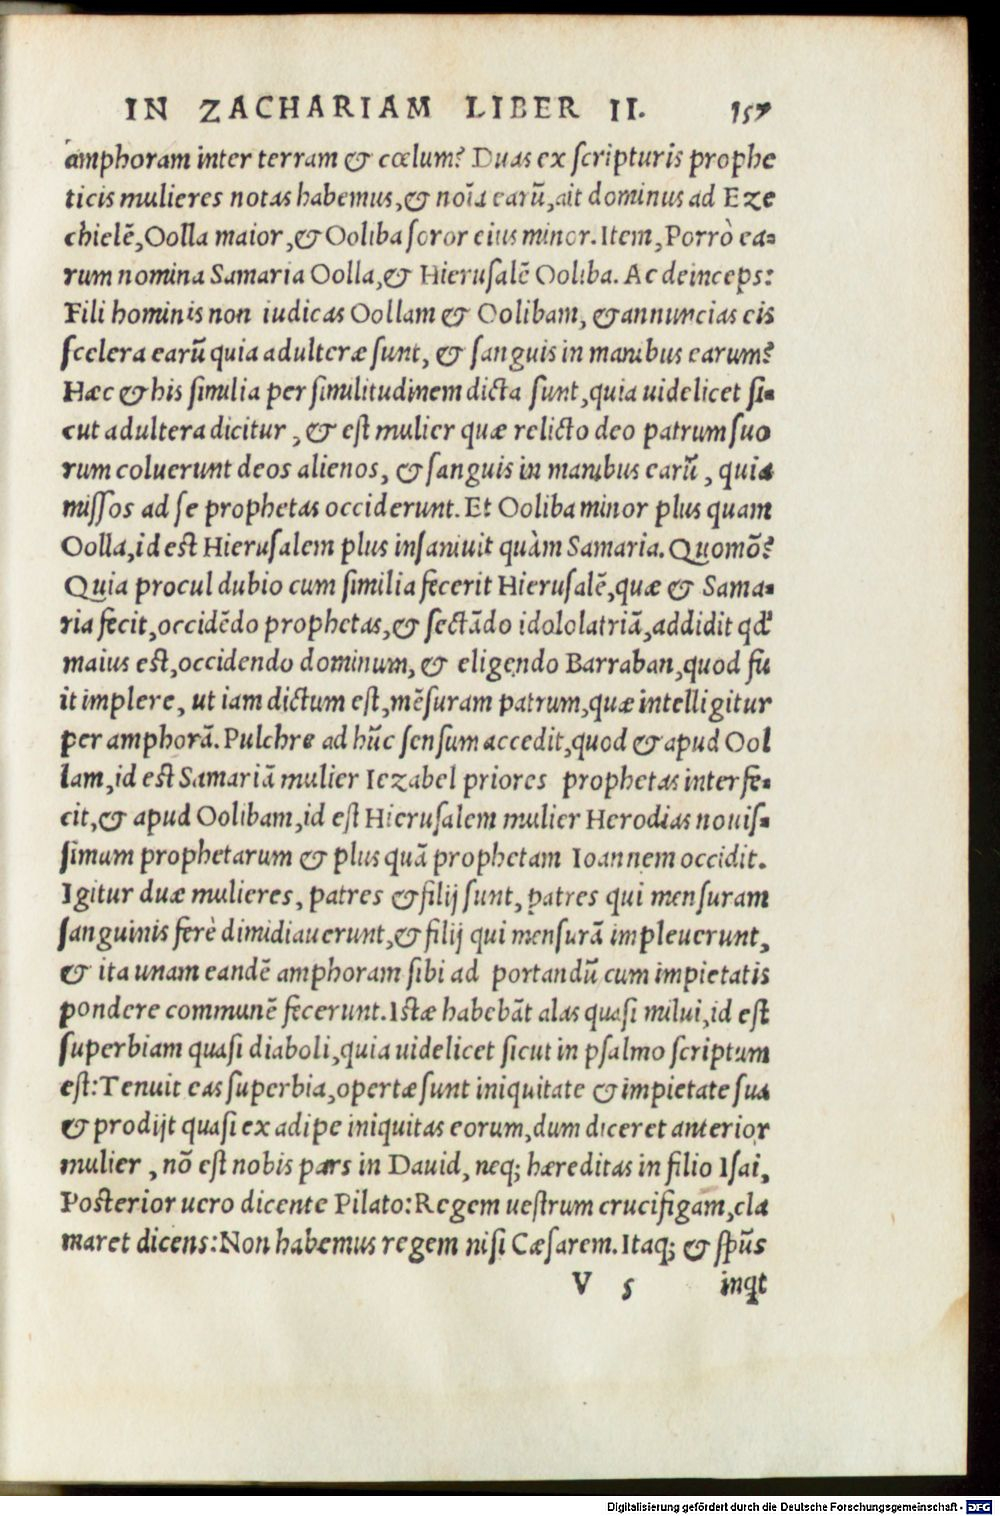 IN ZACHARIAM LIBER II. 157
amphoram inter terram & cœlum? Duas ex ſcripturis prophe
ticis mulieres notas habemus, & noı̄a earū, ait dominus ad Eze
chielē, Oolla maior, & Ooliba ſoror eius minor. Item, Porrò ea-
rum nomina Samaria Oolla, & Hieruſalē Ooliba. Ac deinceps:
Fili hominis non iudicas Oollam & Oolibam, & annuncias eis
ſcelera earū quia adulteræ ſunt, & ſanguis in manibus earum?
Hæc & his ſimilia per ſimilitudinem dicta ſunt, quia uidelicet ſi-
cut adultera dicitur, & eſt mulier quæ relicto deo patrum ſuo
rum coluerunt deos alienos, & ſanguis in manibus earū, quia
miſſos ad ſe prophetas occiderunt. Et Ooliba minor plus quam
Oolla, id eſt Hieruſalem plus inſaniuit quàm Samaria. Quomō?
Quia procul dubio cum ſimilia fecerit Hieruſalē, quæ & Sama-
ria fecit, occidēdo prophetas, & ſectādo idololatriā, addidit qd'
maius eſt, occidendo dominum, & eligendo Barraban, quod fu
it implere, ut iam dictum eſt, mēſuram patrum, quæ intelligitur
per amphorā. Pulchre ad hūc ſenſum accedit, quod & apud Ool
lam, id eſt Samariā mulier Iezabel priores prophetas interfe-
cit, & apud Oolibam, id eſt Hieruſalem mulier Herodias nouiſ-
ſimum prophetarum & plus quā prophetam Ioannem occidit.
Igitur duæ mulieres, patres & filij ſunt, patres qui menſuram
ſanguinis ferè dimidiauerunt, & filij qui menſurā impleuerunt,
& ita unam eandē amphoram ſibi ad portandū cum impietatis
pondere communē fecerunt. Iſtæ habebāt alas quaſi milui, id eſt
ſuperbiam quaſi diaboli, quia uidelicet ſicut in pſalmo ſcriptum
eſt: Tenuit eas ſuperbia, opertæ ſunt iniquitate & impietate ſua
& prodijt quaſi ex adipe iniquitas eorum, dum diceret anterior
mulier, nō eſt nobis pars in Dauid, neq; hæreditas in filio Iſai,
Poſterior uero dicente Pilato: Regem ueſtrum crucifigam, cla
maret dicens: Non habemus regem niſi Cæſarem. Itaq; & ſpūs
V 5 inqt
Digitalisierung gefördert durch die Deutsche Forschungsgemeinschaft - DFG